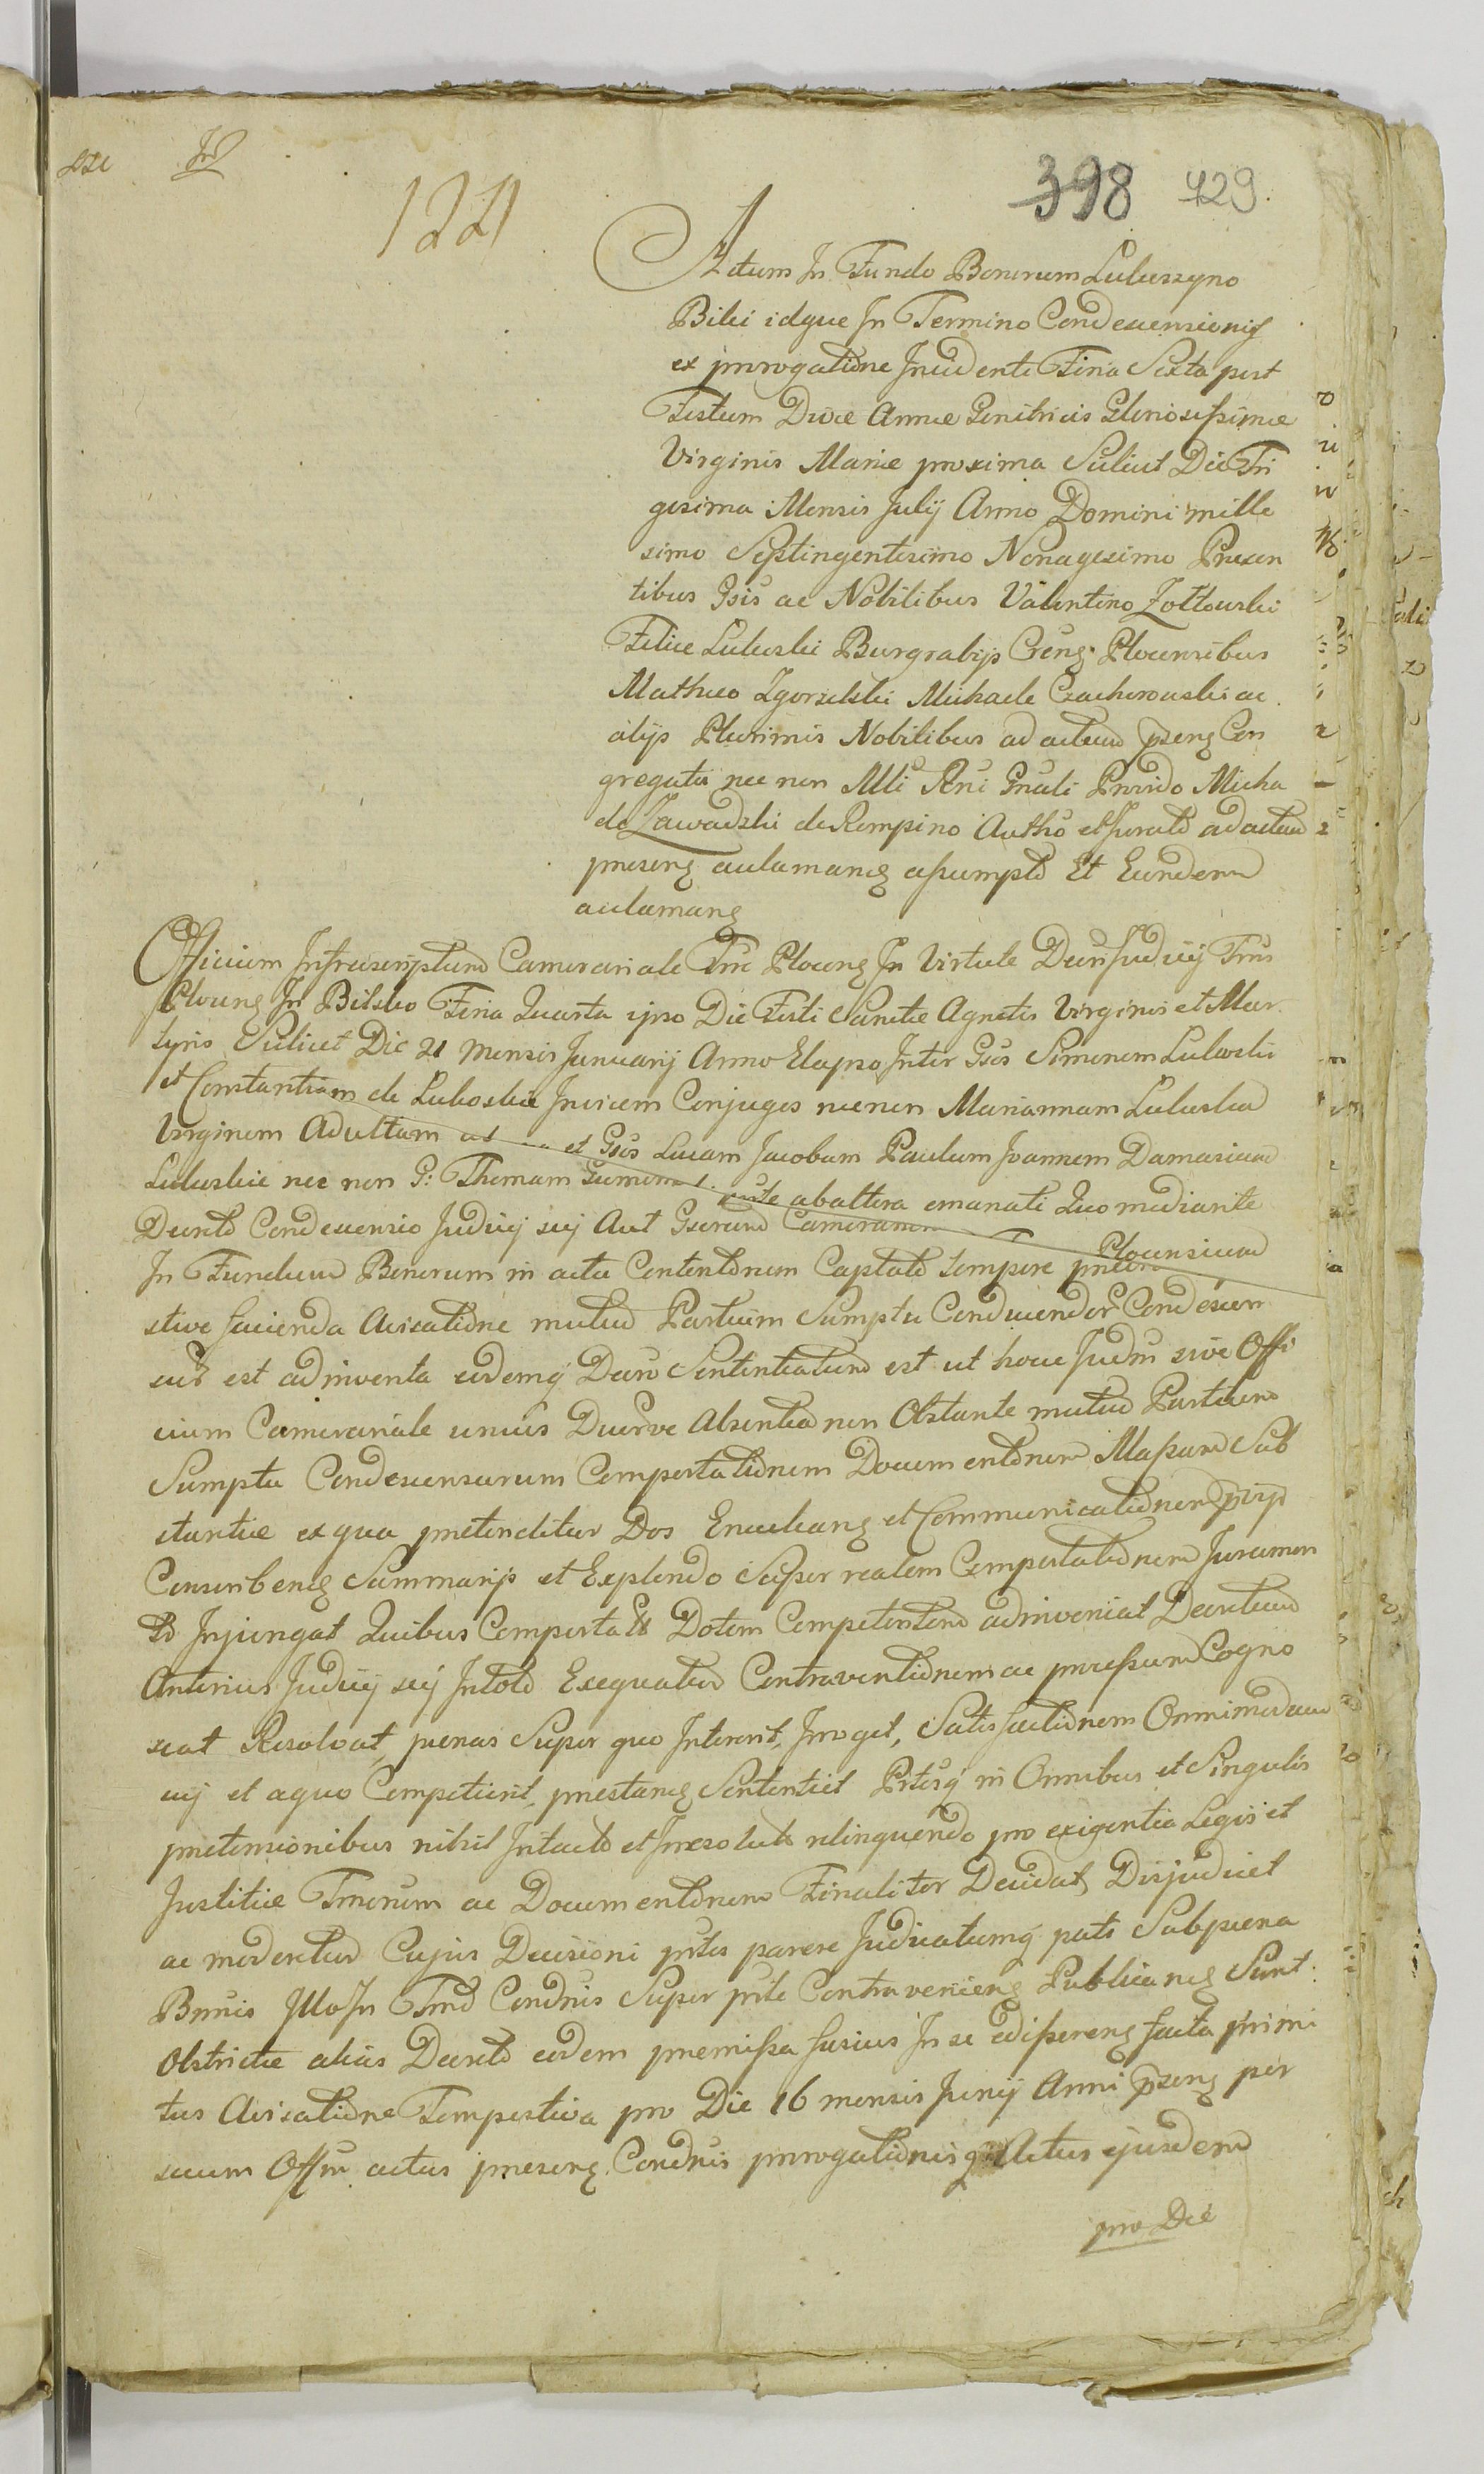 398 429.
1221
Actum In Fundo Bonorum Luluszyno
Bilki idque In Termino Condescensionis
ex prorogatione Incidenti Feria Sexta post
Festum Divae Annae Genitricis Gloriosissimae
Virginis Mariae proxima Scilicet Die Tri
gesima Mensis Julij Anno Domini mille
simo Septingentesimo Nonagesimo Praesen
tibus Gsis ac Nobilibus Valentino Zołtowski
Felice Luluski Burgrabijs Creng. Plocensibus
Matheo Zgorzelski Michaele Czachorowski ac
alijs Plurimis Nobilibus ad actum psens Con
gregatis nec non Mli Rni Gnali Provido Micha
ele Zawadzki de Rempino Autho et Jurato ad actum
praesens aclamans assumpto Et Eundem
aclamans
Officium Infrascriptum Camerariale Plocens In Virtute Decri Judicij
Plocens In Bilsko Feria Quarta ipso Die Festi Sanctae Agnetis Virginis et Mar
tyris Scilicet Die 21 Mensis Januarij Anno Elapso Inter Gsos Simonem Luloski
et Constantiam de Luboskie Invicem Conjuges necnon Mariannam Luluska
Virginem Adultam et Gsos Lucam Jacobum Paulum Joannem Damasium
Luluskie nec non G: Thomam abaltera emanati Quo mediante
Decreto Condescensio Judicij sui Aut Gsorum Plocensium
In Fundum Bonorum in actu Contentorum Captato tempore
stive facienda Avisatione mutuo Partium Sumptu Conducendor Condescen
sur est adinventa eodemq Decro Sententiatum est ut hocce Judm sive Offi
cium Camerariale unius Duorve Absentia non Obstante mutuo Partium
Sumptu Condescensurum Comportationem Documentorum Massam Sub
stantiae ex qua praetenditur Dos Enucleans et Communicationem
Conscribens Summarijs et Explendo Super realem Comportationem Juramen
to Injungat Quibus Comportatis Dotem Competentem adinveniat Decretum
Anterius Judicij sui Intoto Exequatur Contraventionem ac processum Cogno
scat Resolvat, poenas Super quo Intererit, Irroget, Satisfactionem Omnimodam
cuj et aquo Competierit, praestans Sententiet Ptesq in Omnibus et Singulis
praetensionibus nihil Intacto et Irresoluto relinquendo pro exigentia Legis et
Justitiae Tmorum ac Documentorum Finaliter Decidat Disjudicet
ac moderetur Cujus Decisioni ptes parere Judicatumq pati Subpoena
Bnnis Illo In Tmo Condnis Super pte Contraveniens Publicans Sunt
Obstrictae alias Decreto eodem praemissa fusius In se edisserens facta primi
tus Avisatione Tempestiva pro Die 16 mensis Junij Anni psens per
suum Offm actus praesens Condnis prorogationisq Actus ejusdem
pro Die